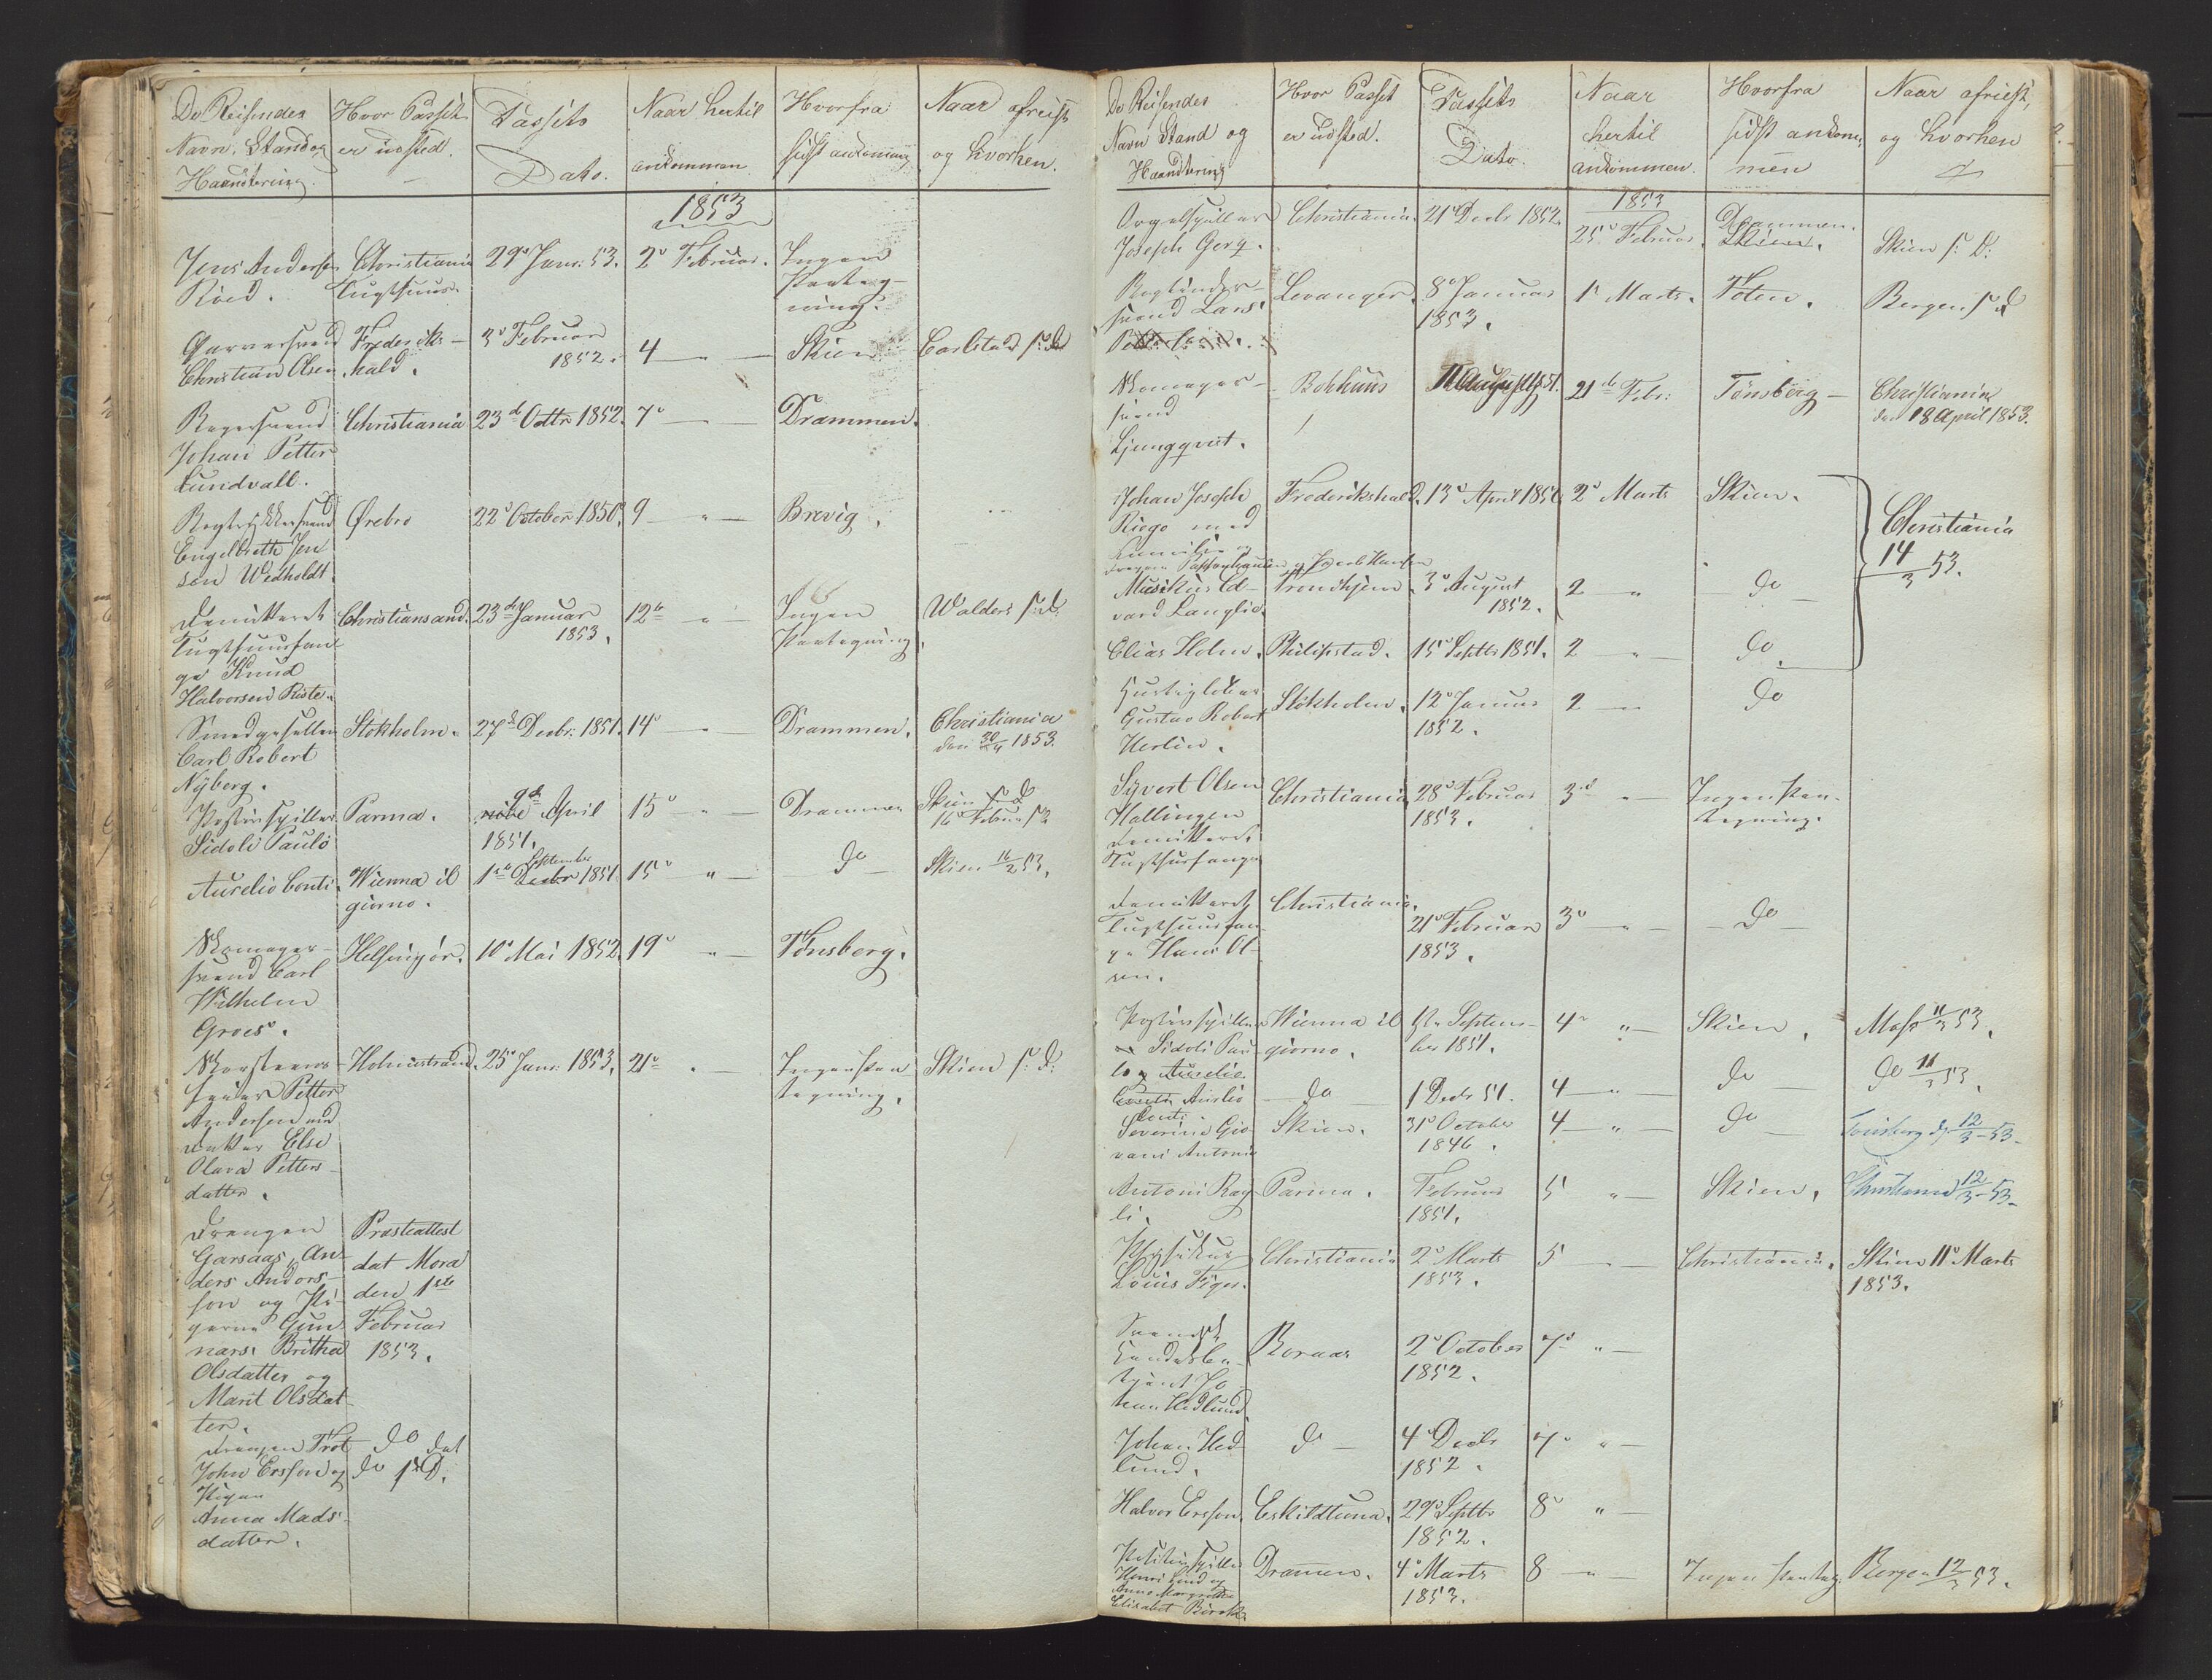 De Reisendes Navn, Stand og Haandtering. | Hvor Passet er udsted. | Passets Dato. | Naar hertil ankommen | Hvorfra sidst ankommen | Naar afreist og hvorhen.
1853
Jens Andersen Röed. | Christiania Tugthuus. | 29de Janr. 53. | 2de Februar. | Ingen Paategning.
Garversvend Christian Olsen | Frederikshald. | 3de Februar 1852. | 4 " — | Skien | Carlstad s: D:
Bagersvend Johan Petter Lundvall. | Christiania | 23de Octbr 1852. | 7de — | Drammen.
Bogtrykkersvend Engelbreth Jenson Wedholdt. | Ørebro | 22de October 1850. | 9 " — | Brevig.
Demitteret Tugthuusfange Knud Halvorsen Riste. | Christiansand. | 23de Januar 1853. | 12te " | Ingen Paategning. | Walders s: D:
Smedgesellen Carl Robert Nyberg. | Stokholm. | 27de Decbr: 1851. | 14de " — | Drammen. | Christiania den 30/4 1853.
Positivspiller Sidoli Paulo | Parma. | 9de April 1851. | 15de " — | Drammen | Skien 16 Februar 53
Aurelio Conti. | Wienna il giorno. | 1ste September 1851 | 15de " — | do — | Skien 16/2 53.
Skomagersvend Carl Wilhelm Groes. | Helsingör. | 10de Mai 1852. | 19de " — | Tönsberg.
Skorsteensfeier Petter Andersen med Datter Else Olava Pettersdatter. | Holmestrand. | 25de Janr: 1853. | 21de " — | Ingen Paategning. | Skien s: D:
Drengen Garsaas Anders Andersson og Pigerne Gunnars Brittha Olsdatter og Marit Olsdatter. | Præsteattest dat Mora den 1ste Februar 1853.
Drengen Trot John Ersson og Pigen Anna Madsdatter. | do dat do s. D.
De Reisendes Navn Stand og Haandtering | Hvor Passet er udsted. | Passets Dato. | Naar hertil ankommen. | Hvorfra sidst ankommen | Naar afreist, og hvorhen
1853
Orgelspiller Joseph Gerg. | Christiania. | 21de Decbr 1852. | 25de Februar. | Drammen. | Skien s: D:
Bogbindersvend Lars | Levanger. | 8de Januar 1853. | 1 Marts. | Toten. | Bergen s: D
Skomagersvend Ljungqvist. | Bohhuus | 11 August 1851. | 21de Febr: | Tönsberg — | Christiania den 18 April 1853.
Johan Joseph Riego med Familie og Drengen og Jacob Hansen | Frederikshald. | 13de April 1851 | 2de Marts | Skien. | Christiania 14/3 53.
Musikus Edvard Langlie. | Trondhjem. | 3de August 1852. | 2 " | do —
Elias Holm. | Philipstad. | 15de Septbr 1851. | 2 " — | do.
Gustav Robert Herlin. | Stokholm. | 12de Januar 1852. | 2 — | do
Syvert Olsen Hallingen demitteret Tugthusfange | Christiania | 28de Februar 1853. | 3de " — | Ingen Paategning.
Demitteret Tugthuusfange Hans Olsen. | Christiania. | 21de Februar 1853. | 3de " — | — do —
Positivspiller Sidoli Paulo | Wienna il giorno. | 1ste September 1851. | 4de " — | Skien. | Moss 11/3 53.
Aurelio Conti | — do — | 1 Decbr 51. | 4 — " — | do — | do 11/3 53.
Severine Giovani Antonio | Skien. | 31de October 1846. | 4 — " — | do — | Tönsberg d. 12/3 – 53.
Antoni Ragli. | Parma. | Februar 1851. | 5 " — | Skien. | Christiania 12/3 – 53.
Louis Figer. | Christiania | 2de Marts 1853. | 5 " — | Christiania. | Skien 11te Marts 1853.
Svensk Handelsbetjent Johan Hedlund | Boraas | 2de October 1852. | 7de " —
Johan Hedlund. | do — | 4de Decbr 1852. | 7de " —
Halvor Ersson. | Eskildtuna. | 29de Septbr 1852. | 8de " —
Positivspiller Henri Lind og Anna Margrethe Elisabet Börck. | Dramen. | 4de Marts 1853. | 8 — " — | Ingen Paateg. | Bergen 12/3 53.